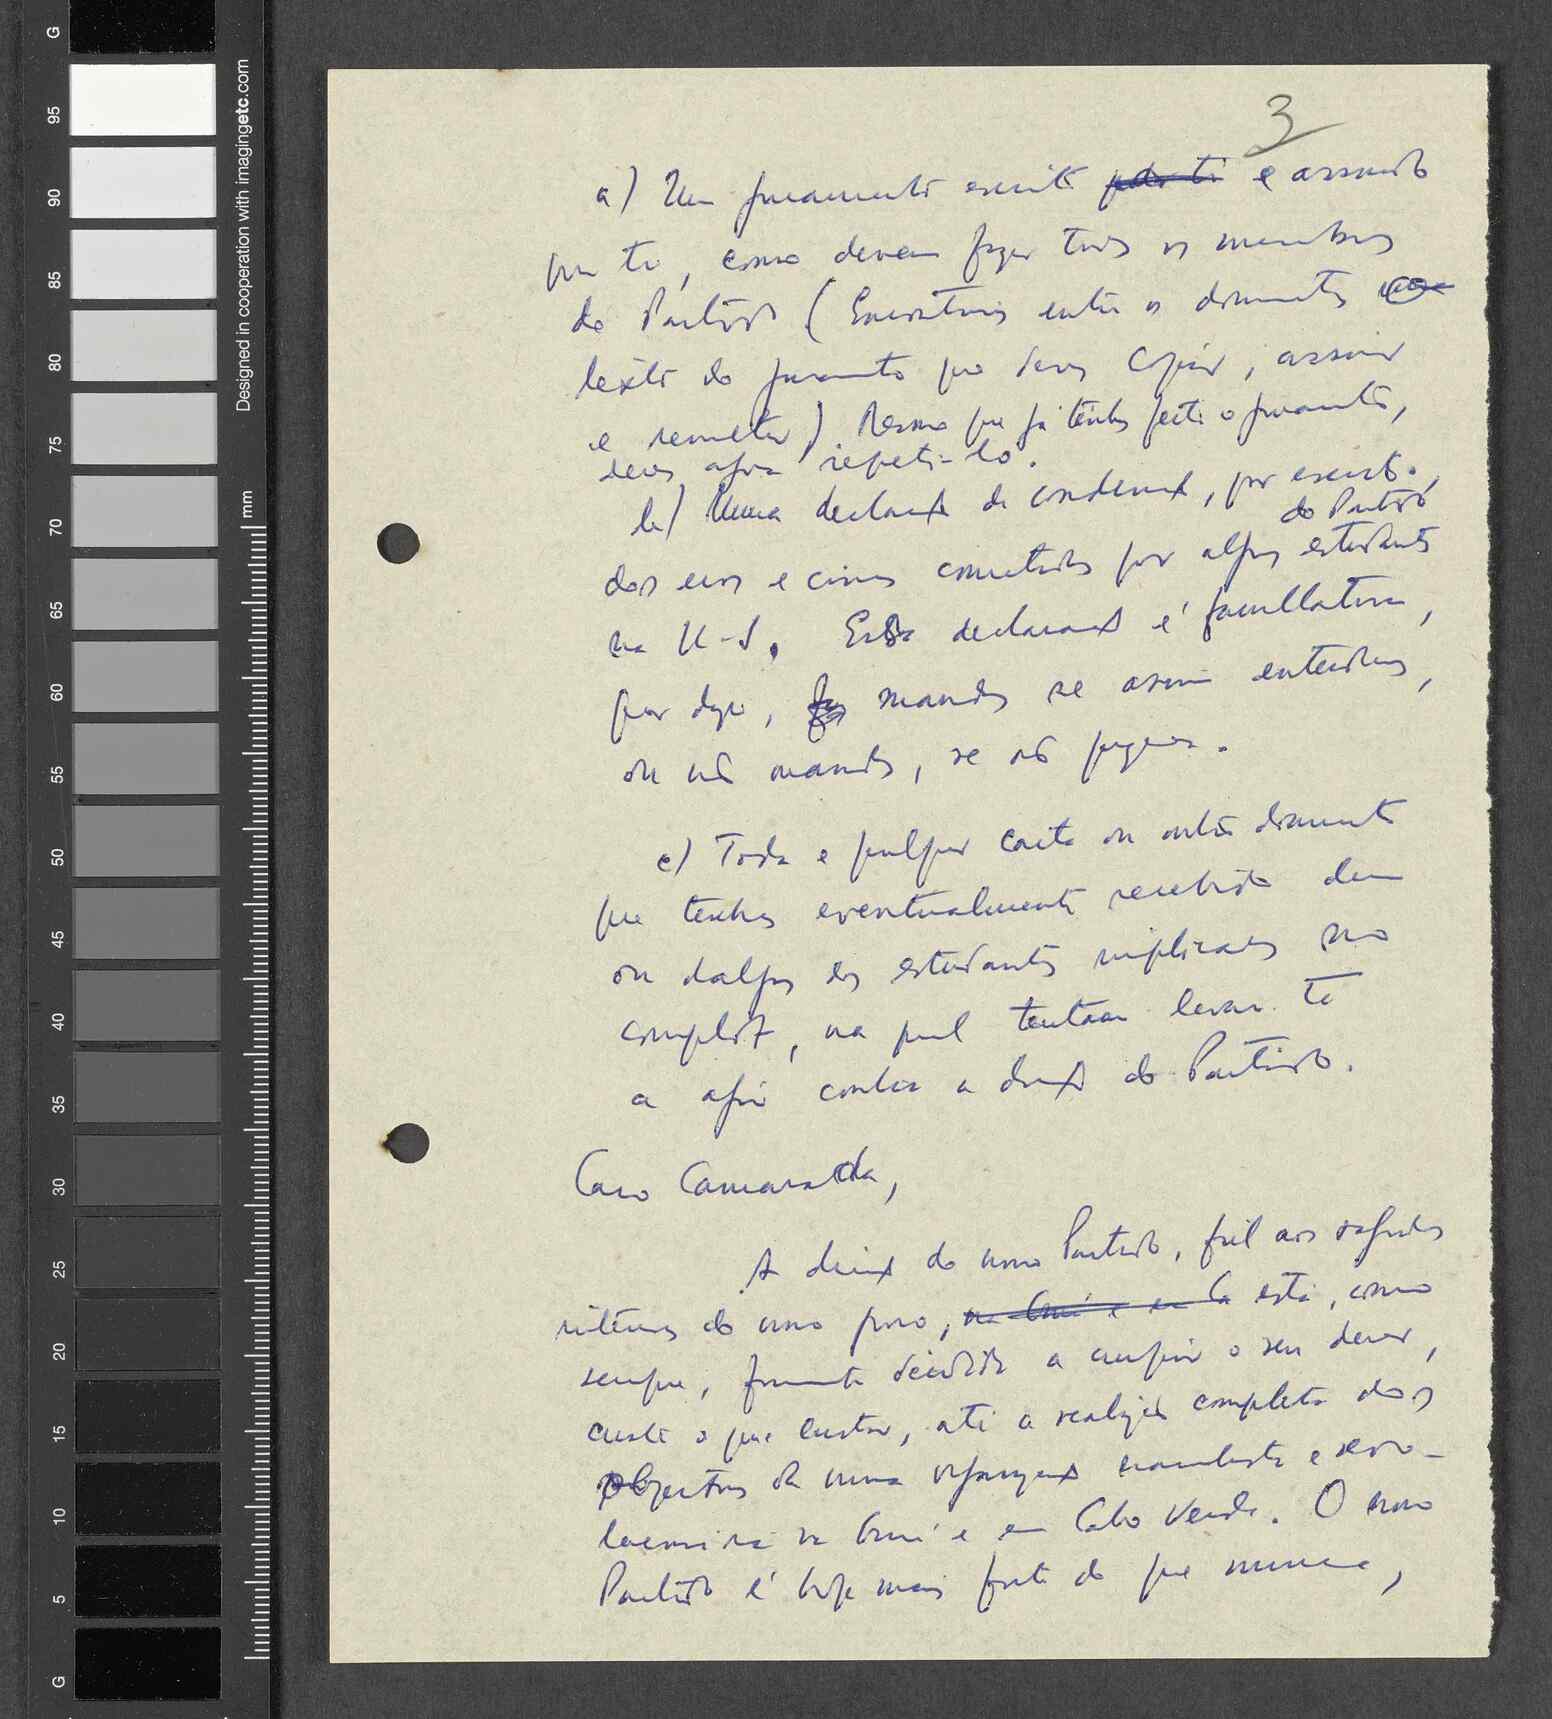 3
a) Um juramento escrito por ti e assinado
por ti, como devem fazer todos os membros
do Partido (Encontrarás entre os documentos
texto do juramento que deves copiar, assinar
e remeter). Mesmo que já tenhas feito o juramento,
deves agora repeti-lo.
b) Uma declaração de condenação, por escrito,
do Partido
dos erros e crimes cometidos por alguns estudantes
na U-S. Essa declaração é facultativa,
quer dizer, mandas se assim entenderes,
ou não mandas, se não quiseres.
c) Toda e qualquer carta ou outro documento
que tenhas eventualmente recebido dum
ou dalguns dos estudantes implicados no
complot, na qual tentam levar-te
a agir contra a direcção do Partido.
Caro Camarada,
A direcção do nosso Partido, fiel aos sagrados
interesses do nosso povo, na Guiné e em Ca está, como
sempre, firmemente decidida a cumprir o seu dever,
custe o que custar, até à realização completa dos
objectivos da nossa organização combatente e revo-
lucionária na Guiné e em Cabo Verde. O nosso
Partido é hoje mais forte do que nunca,
Designed in cooperation with imagingetc.com
mm
G
95
90
85
80
75
70
65
60
55
50
45
40
35
30
25
20
15
10
5
G